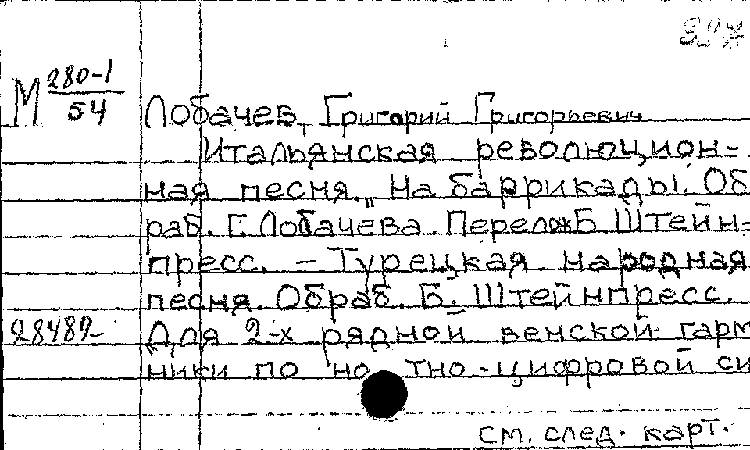 М 280-1
54
Лобачев, Григорий Григорьевич
Итальянская революцион-
ная песня. "На баррикады". Об
раб. Г. Лобачева. Перелож Б. Штейн-
пресс. - Турецкая народная
песня. Обраб. Б. Штейнпресс.
28489- Для 2-х рядной венской гарм
ники по но тно-цифровой си
см. след. карт.